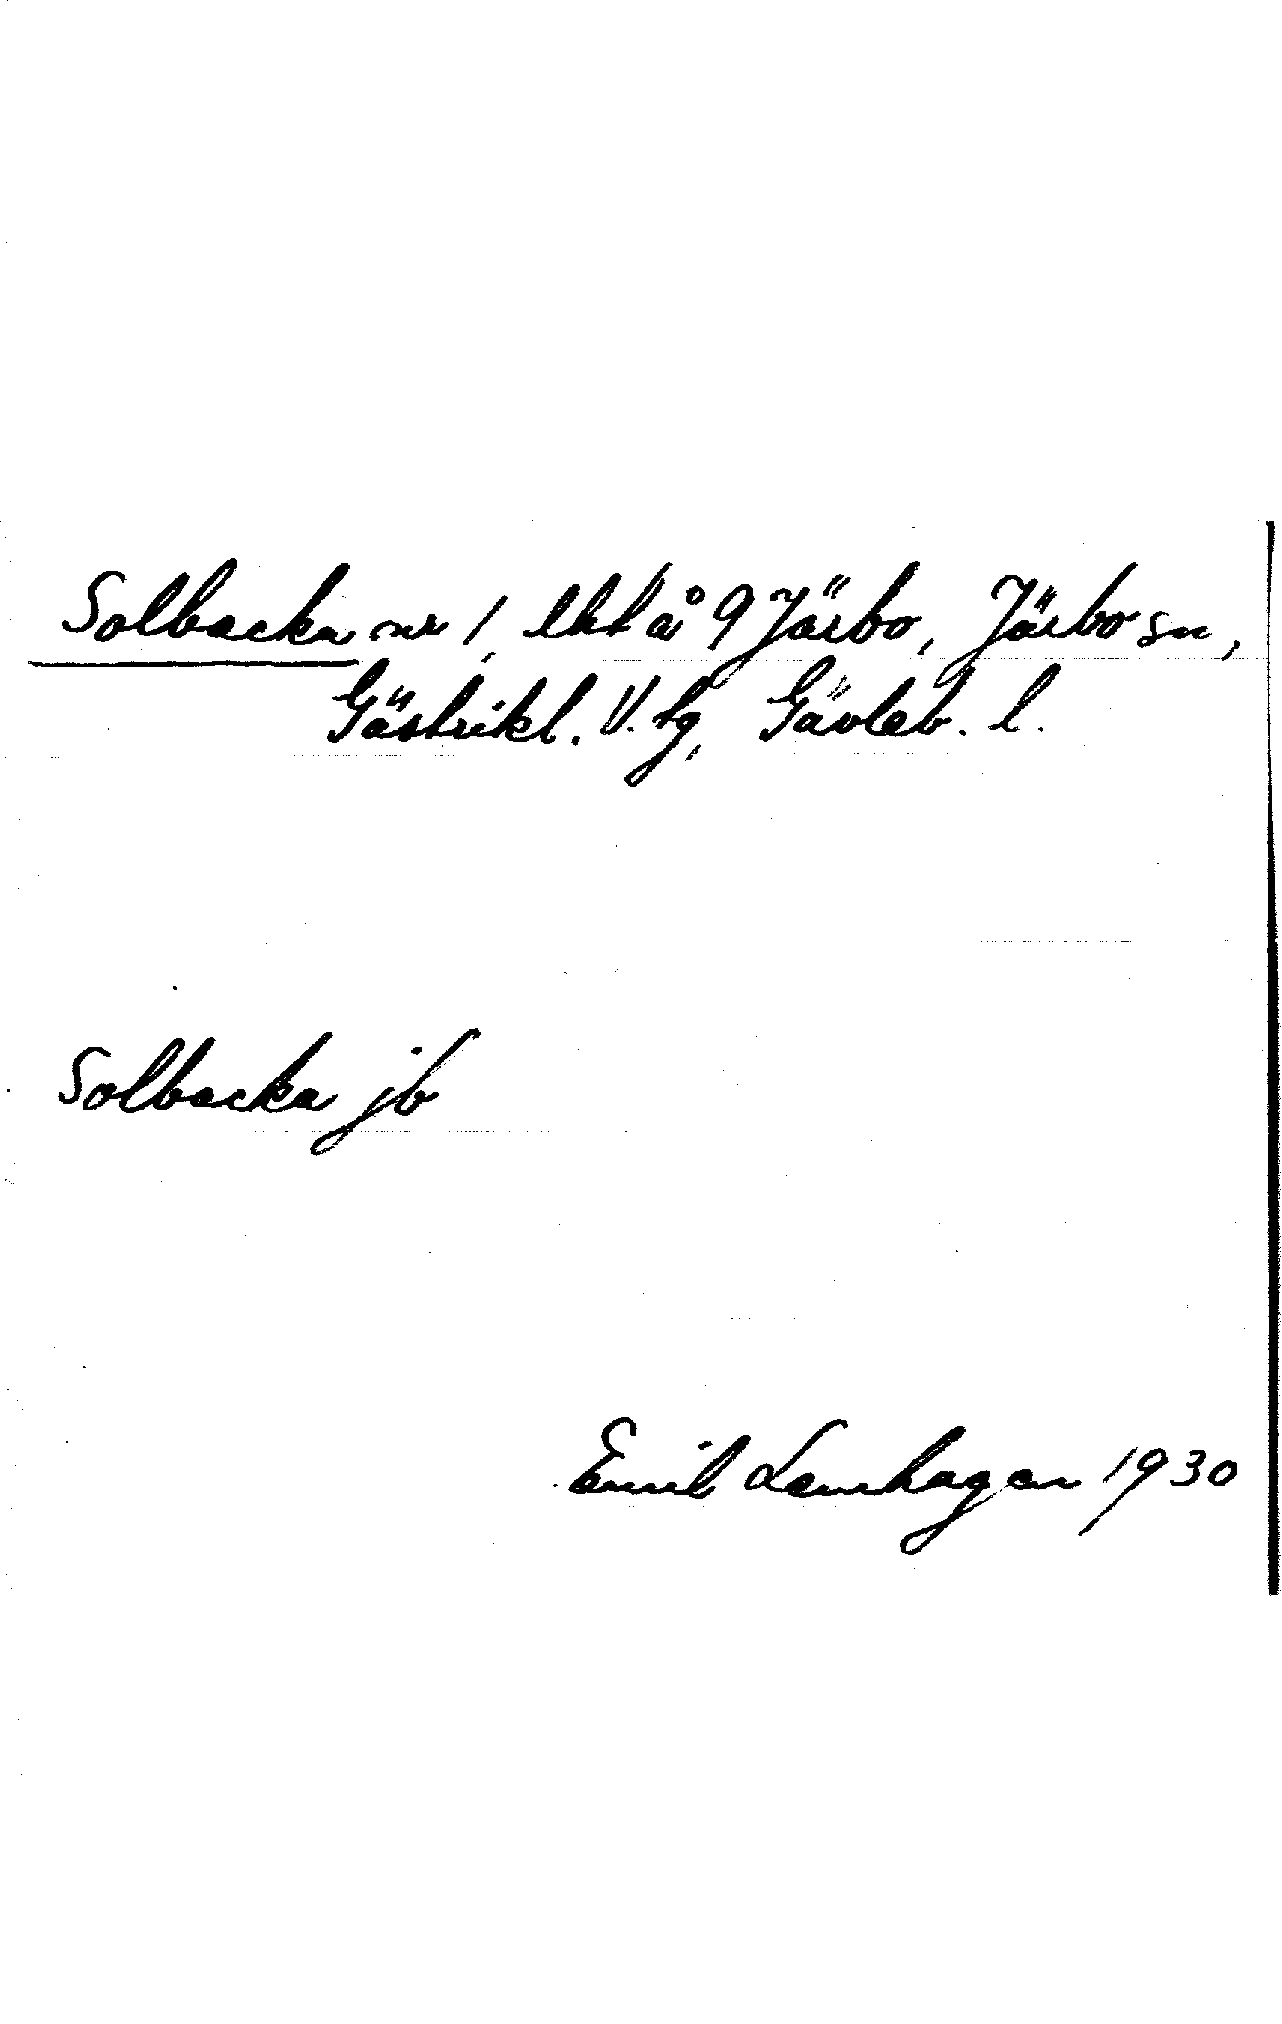 Solbacka nr 1, lht å 9 Järbo, Järbo sn,
Gästrikl. V. tg, Gävleb. l.
Solbacka jb
Emil Lenhagen 1930